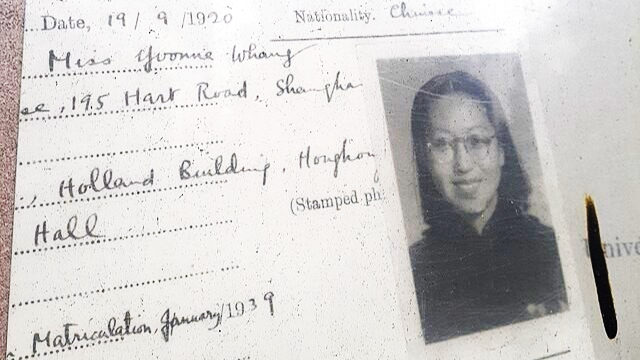 Date, 19/9/1920 Nationality. Chinese
Miss Yvonne Whang
195 Hart Road, Shangha
Holland Building, Hongkong
(Stamped ph
Hall
Unive
Matriculation, January/1939